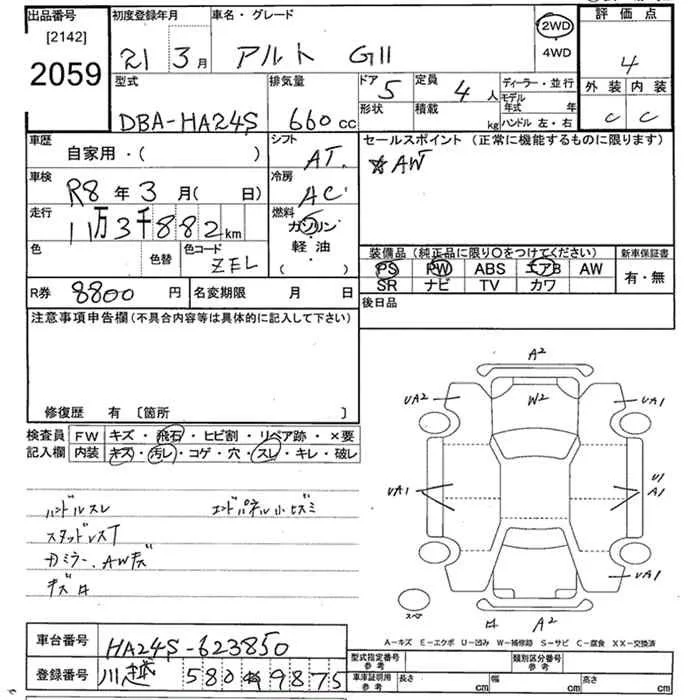 出品番号
[2142]
2059
初度登録年月
21 3月
車名・グレード
アルト GⅡ
2WD
4WD
評価点
4
外装 内装
C C
型式
DBA-HA24S
排気量
660 cc
ドア
5
定員
4 人
形状
積載
kg
ディーラー・並行
モデル年式 年
ハンドル 左・右
車歴
自家用・( )
シフト
AT
セールスポイント (正常に機能するものに限ります)
☆AW
車検
R8年3月( 日)
冷房
AC
走行
11万3千882km
燃料
ガソリン
軽油
( )
色
色替
色コード
ZEL
装備品 (純正品に限り〇をつけてください)
PS PW ABS エアB AW
SR ナビ TV カワ
新車保証書
有・無
R券 8800円
名変期限 月 日
後日品
注意事項申告欄 (不具合内容等は具体的に記入して下さい)
修復歴 有 〔箇所 〕
検査員
記入欄
FW キズ・飛石・ヒビ割・リペア跡・×要
内装 キズ・汚レ・コゲ・穴・スレ・キレ・破レ
ハンドルスレ
エンドパネル小ヒズミ
スタッドレスT
カミラー、AWキズ
A2
UA2
W2
UA1
UA1
U1
A1
UA1
スペア
A2
A-キズ E-エクボ U-凹み W-補修跡 S-サビ C-腐食 XX-交換済
車台番号
HA24S-623850
登録番号
川越 580 9875
型式指定番号
参考
類別区分番号
参考
車庫証明用
参考
長さ cm
幅 cm
高さ cm